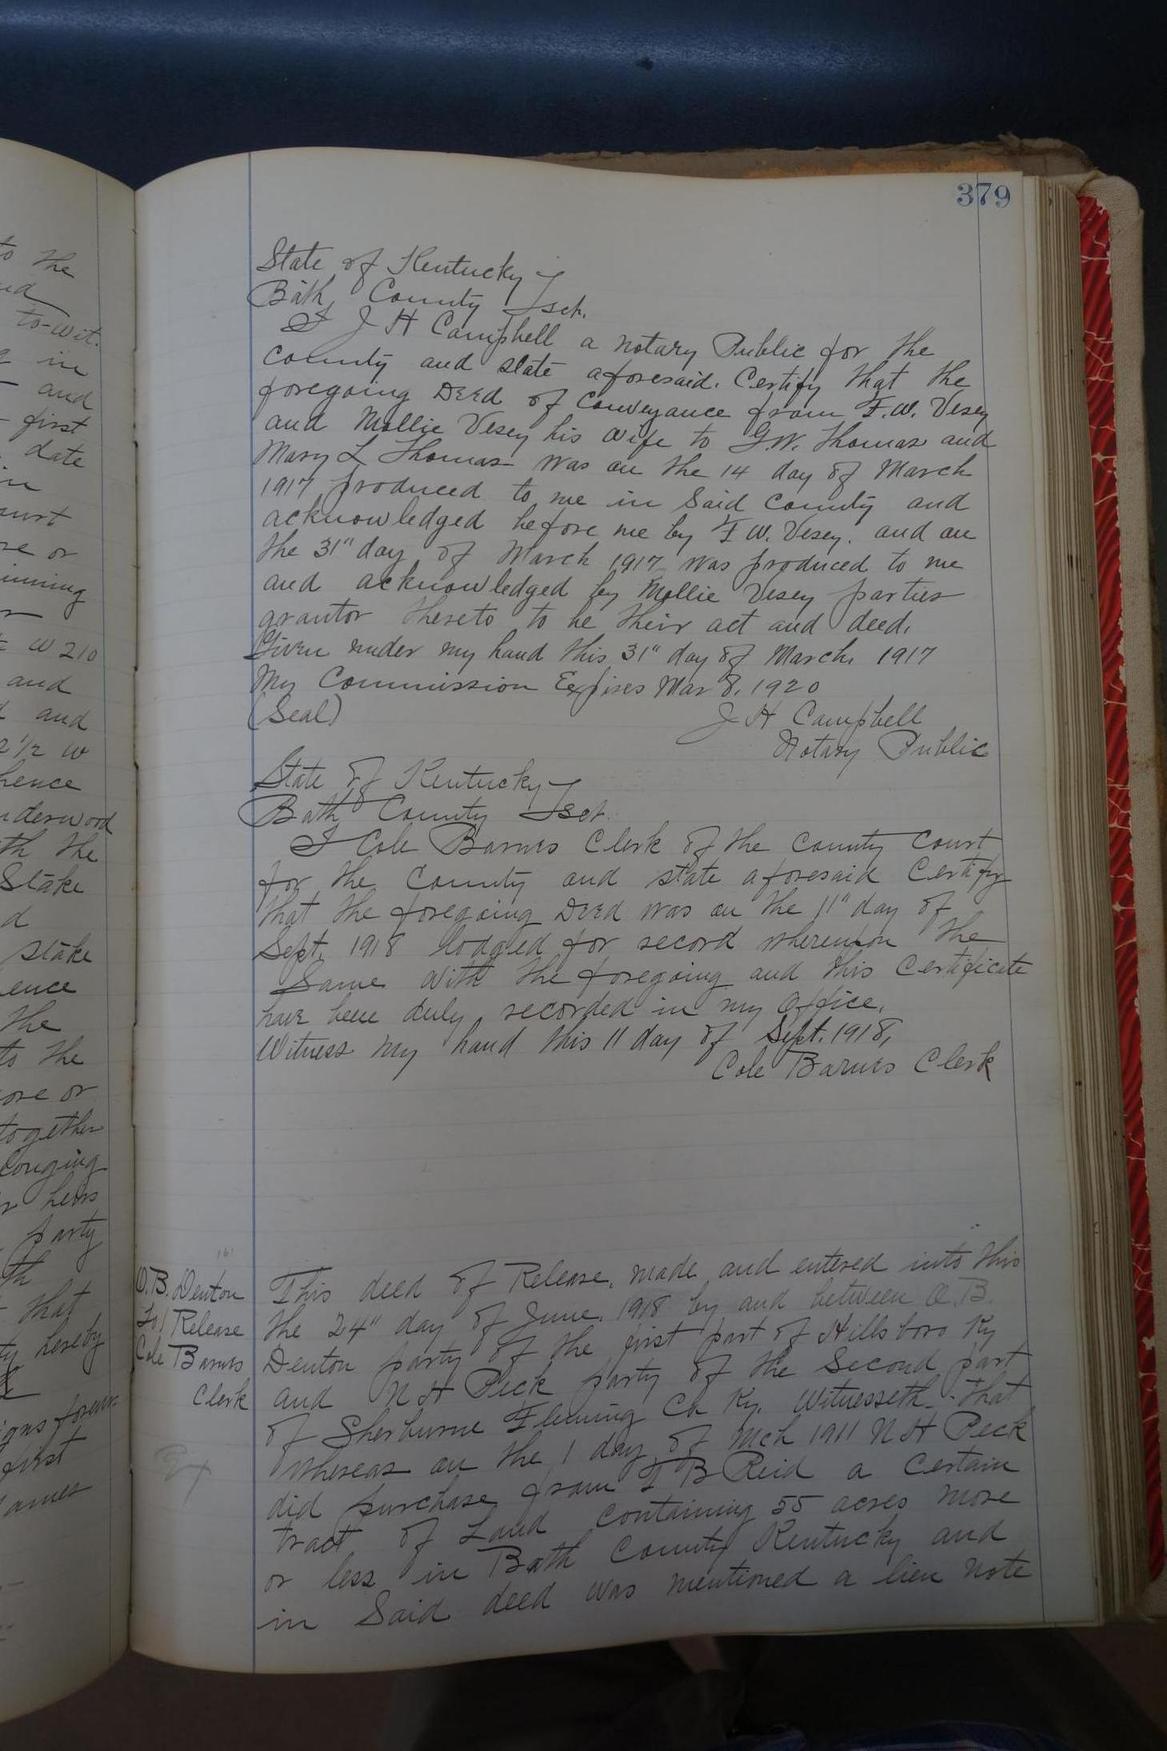 379
State of Kentucky
Bath County Sct.
I J H Campbell a notary Public for the
county and state aforesaid. Certify that the
foregoing Deed of Conveyance from F. W. Vesey
and Mollie Vesey his wife to G. W. Thomas and
Mary L Thomas was on the 14 day of March
1917 produced to me in Said County and
acknowledged before me by F. W. Vesey. and on
the 31" day of March 1917 was produced to me
and acknowledged by Mollie Vesey parties
grantor thereto to be their act and deed.
Given under my hand this 31" day of March, 1917
My Commission Expires Mar 8, 1920
(Seal) J H Campbell
Notary Public
State of Kentucky
Bath County Sct.
I Cole Barnes Clerk of the County Court
for the County and state aforesaid Certify
that the foregoing Deed was on the 11" day of
Sept. 1918 lodged for record whereupon the
Same with the foregoing and this Certificate
have been duly recorded in my office.
Witness my hand this 11 day of Sept. 1918,
Cole Barnes Clerk
O. B. Denton
To / Release
Cole Barnes
Clerk
This deed of Release, made and entered into this
the 24" day of June, 1918 by and between O. B.
Denton party of the first part of Hillsboro Ky
and N H Peck party of the Second part
of Sherburne Fleming Co Ky. Witnesseth. That
whereas on the 1 day of Mch 1911 N H Peck
did purchase from T B Reid a Certain
tract of Land containing 55 acres more
or less in Bath County Kentucky and
in Said deed was mentioned a lien note
to the
to-wit.
in
and
first
date
in
or
W 210
and
and
2 1/2 W
hence
the
Stake
stake
the
to the
or
together
heirs
party
that
hereby
first